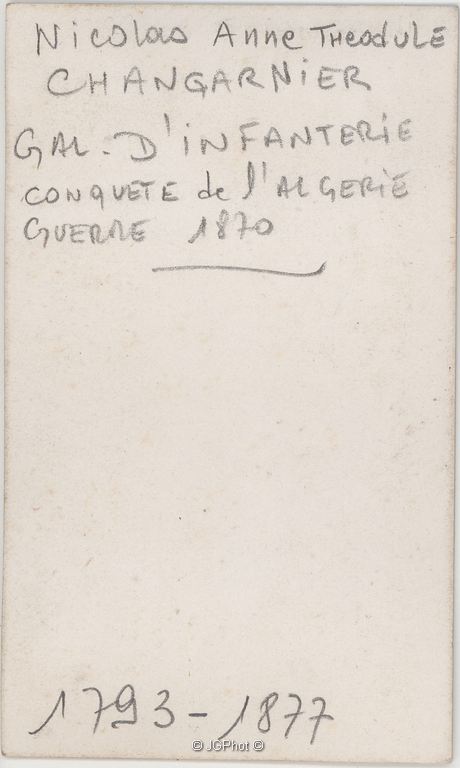 Nicolas Anne THEODULE
CHANGARNiER
GAL. D'iNFANTERiE
CONQUETE de l'ALGERiE
GUERRE 1870
1793-1877
© JGPhot ©